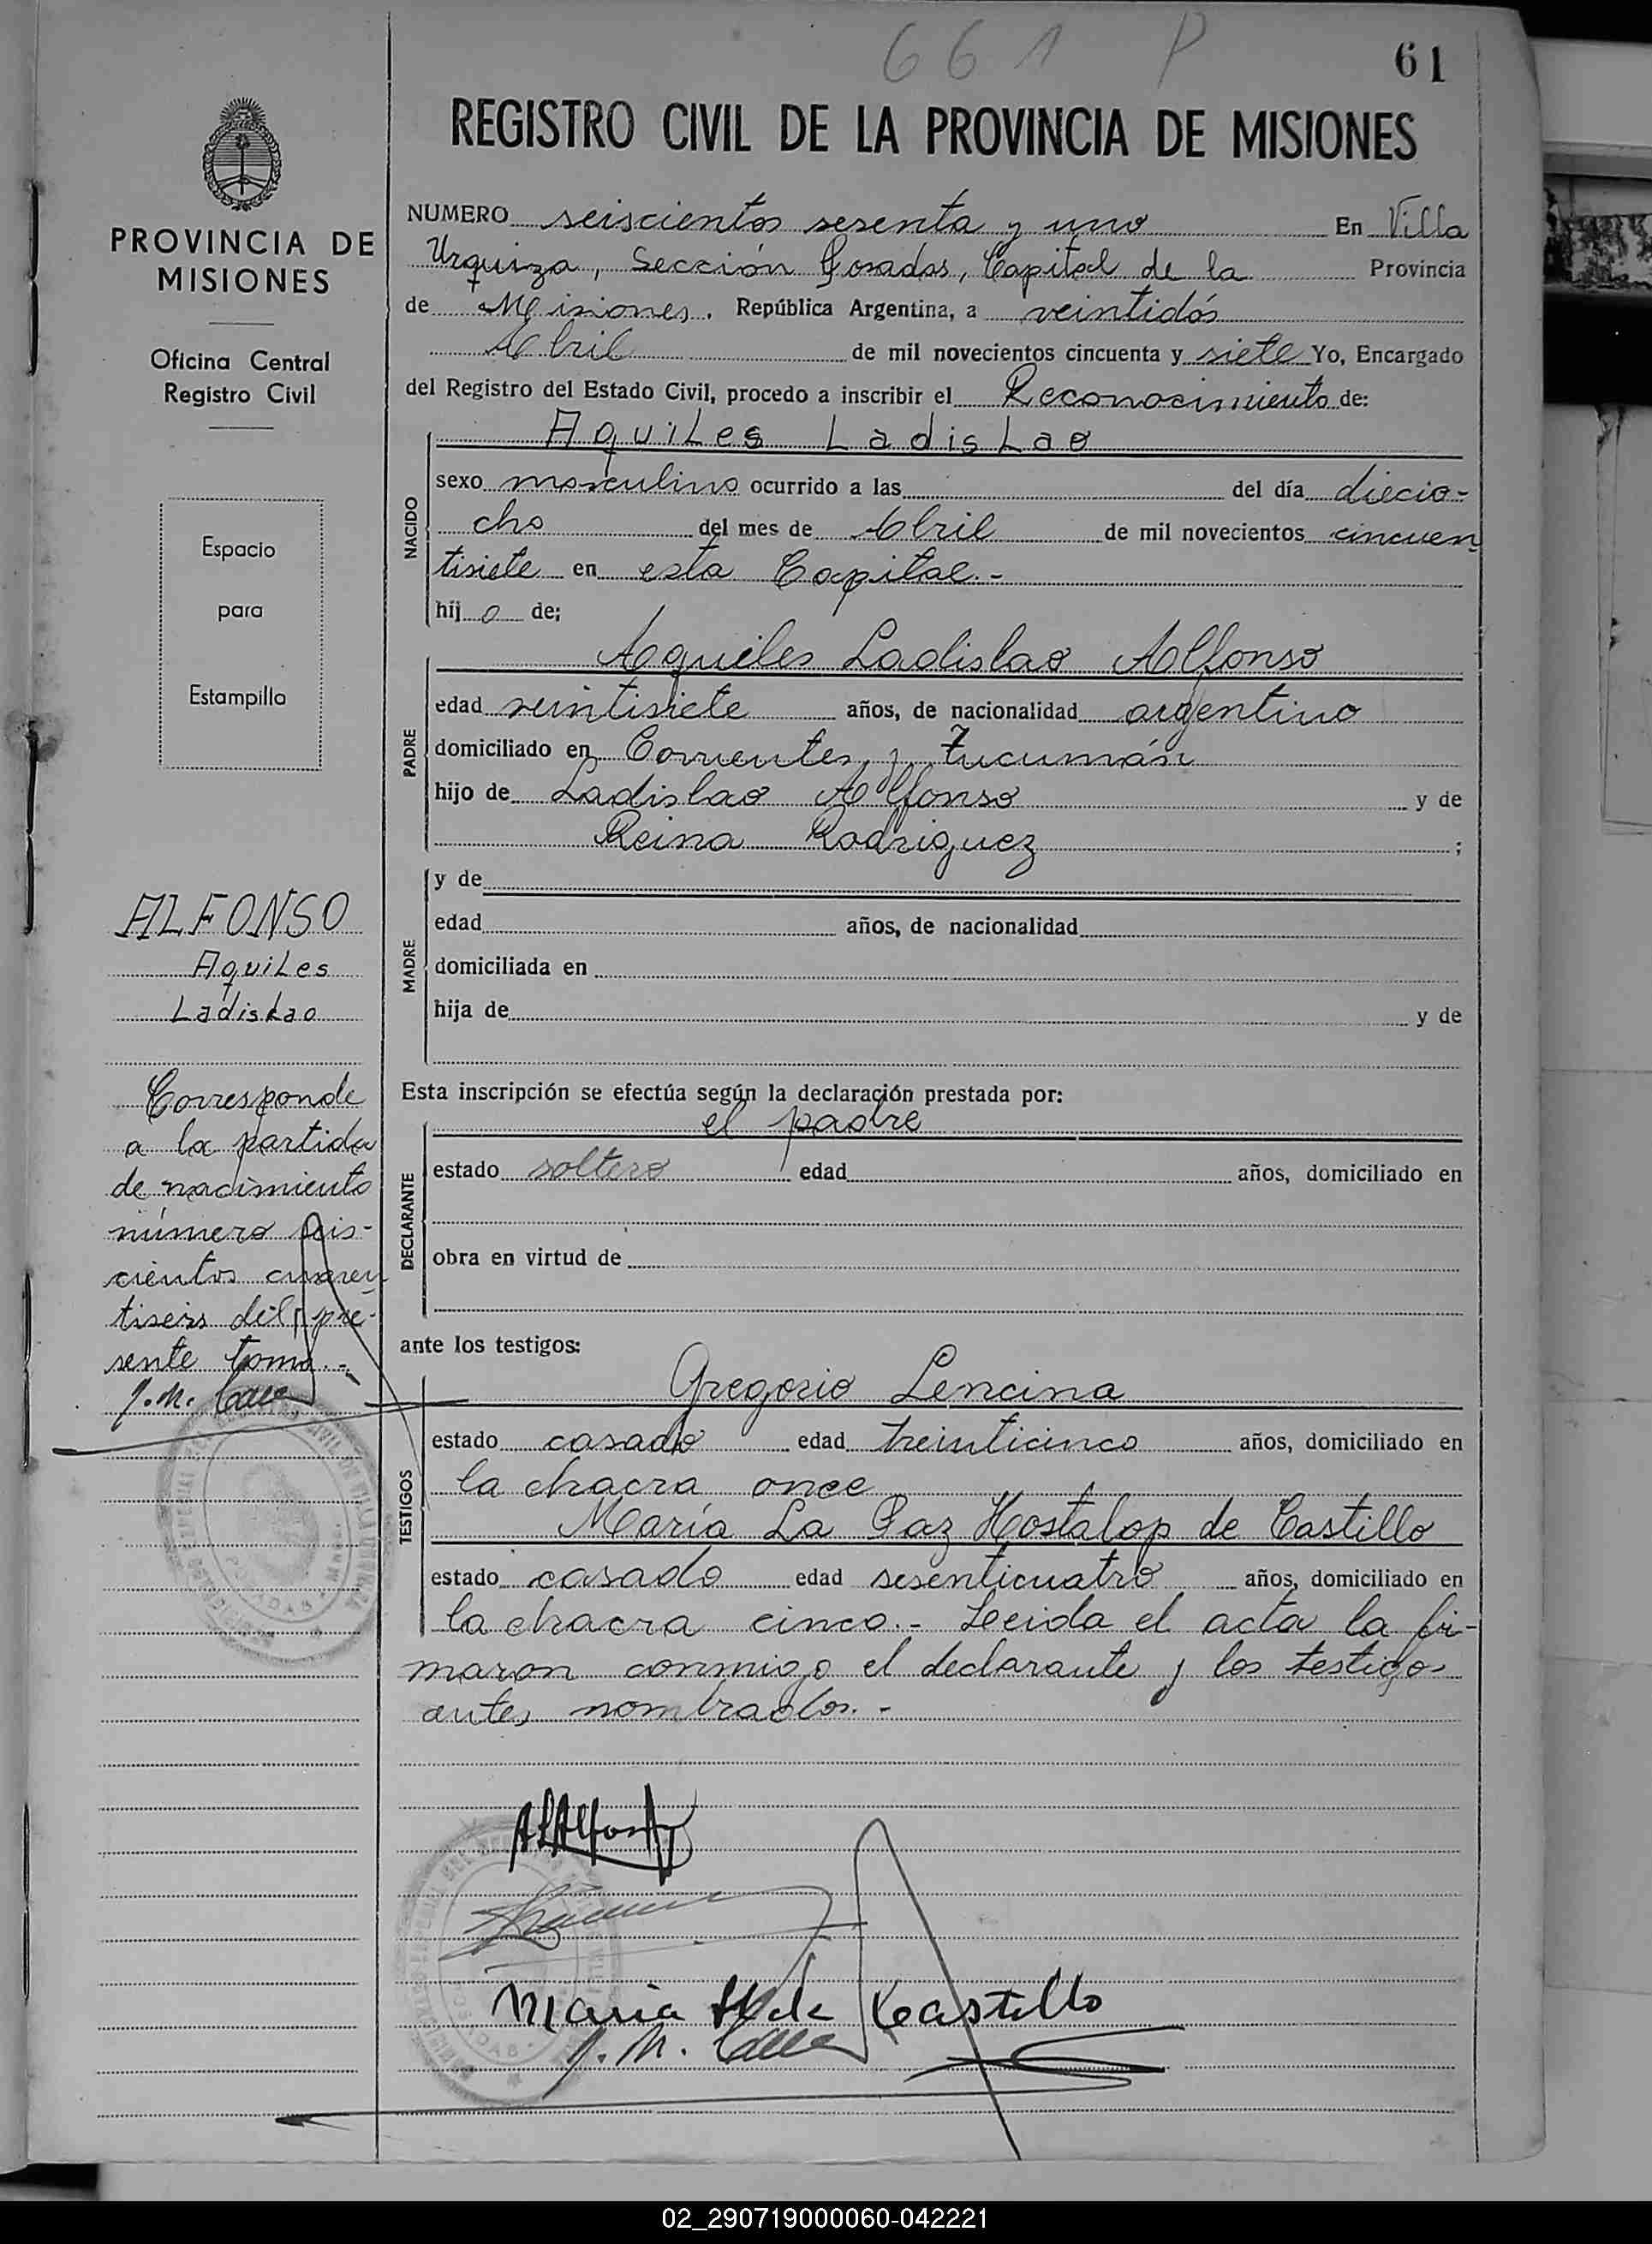 661 P
61
REGISTRO CIVIL DE LA PROVINCIA DE MISIONES
PROVINCIA DE
MISIONES
Oficina Central
Registro Civil
Espacio
para
Estampilla
ALFONSO
Aquiles
Ladislao
Corresponde
a la partida
de nacimiento
número seis-
cientos cuaren
tiseis del pre-
sente tomo.-
NUMERO seiscientos sesenta y uno En Villa
Urquiza, Sección Posadas, Capital de la Provincia
de Misiones. República Argentina, a veintidós
Abril de mil novecientos cincuenta y siete Yo, Encargado
del Registro del Estado Civil, procedo a inscribir el Reconocimiento de:
Aquiles Ladislao
NACIDO
sexo masculino ocurrido a las del día diecio-
cho del mes de Abril de mil novecientos cincuen
tisiete en esta Capital.-
hij o de;
Aquiles Ladislao Alfonso
PADRE
edad veintisiete años, de nacionalidad argentino
domiciliado en Corrientes y Tucumán
hijo de Ladislao Alfonso y de
Reina Rodriguez ;
MADRE
y de
edad años, de nacionalidad
domiciliada en
hija de y de
Esta inscripción se efectúa según la declaración prestada por:
el padre
DECLARANTE
estado soltero edad años, domiciliado en
obra en virtud de
ante los testigos:
Gregorio Lencina
TESTIGOS
estado casado edad treinticinco años, domiciliado en
la chacra once
María La Paz Hostalop de Castillo
estado casado edad sesenticuatro años, domiciliado en
la chacra cinco.- Leida el acta la fir-
maron conmigo el declarante y los testigos
antes nombrados.-
ALAlfonso
Maria H de Castillo
02_290719000060-042221